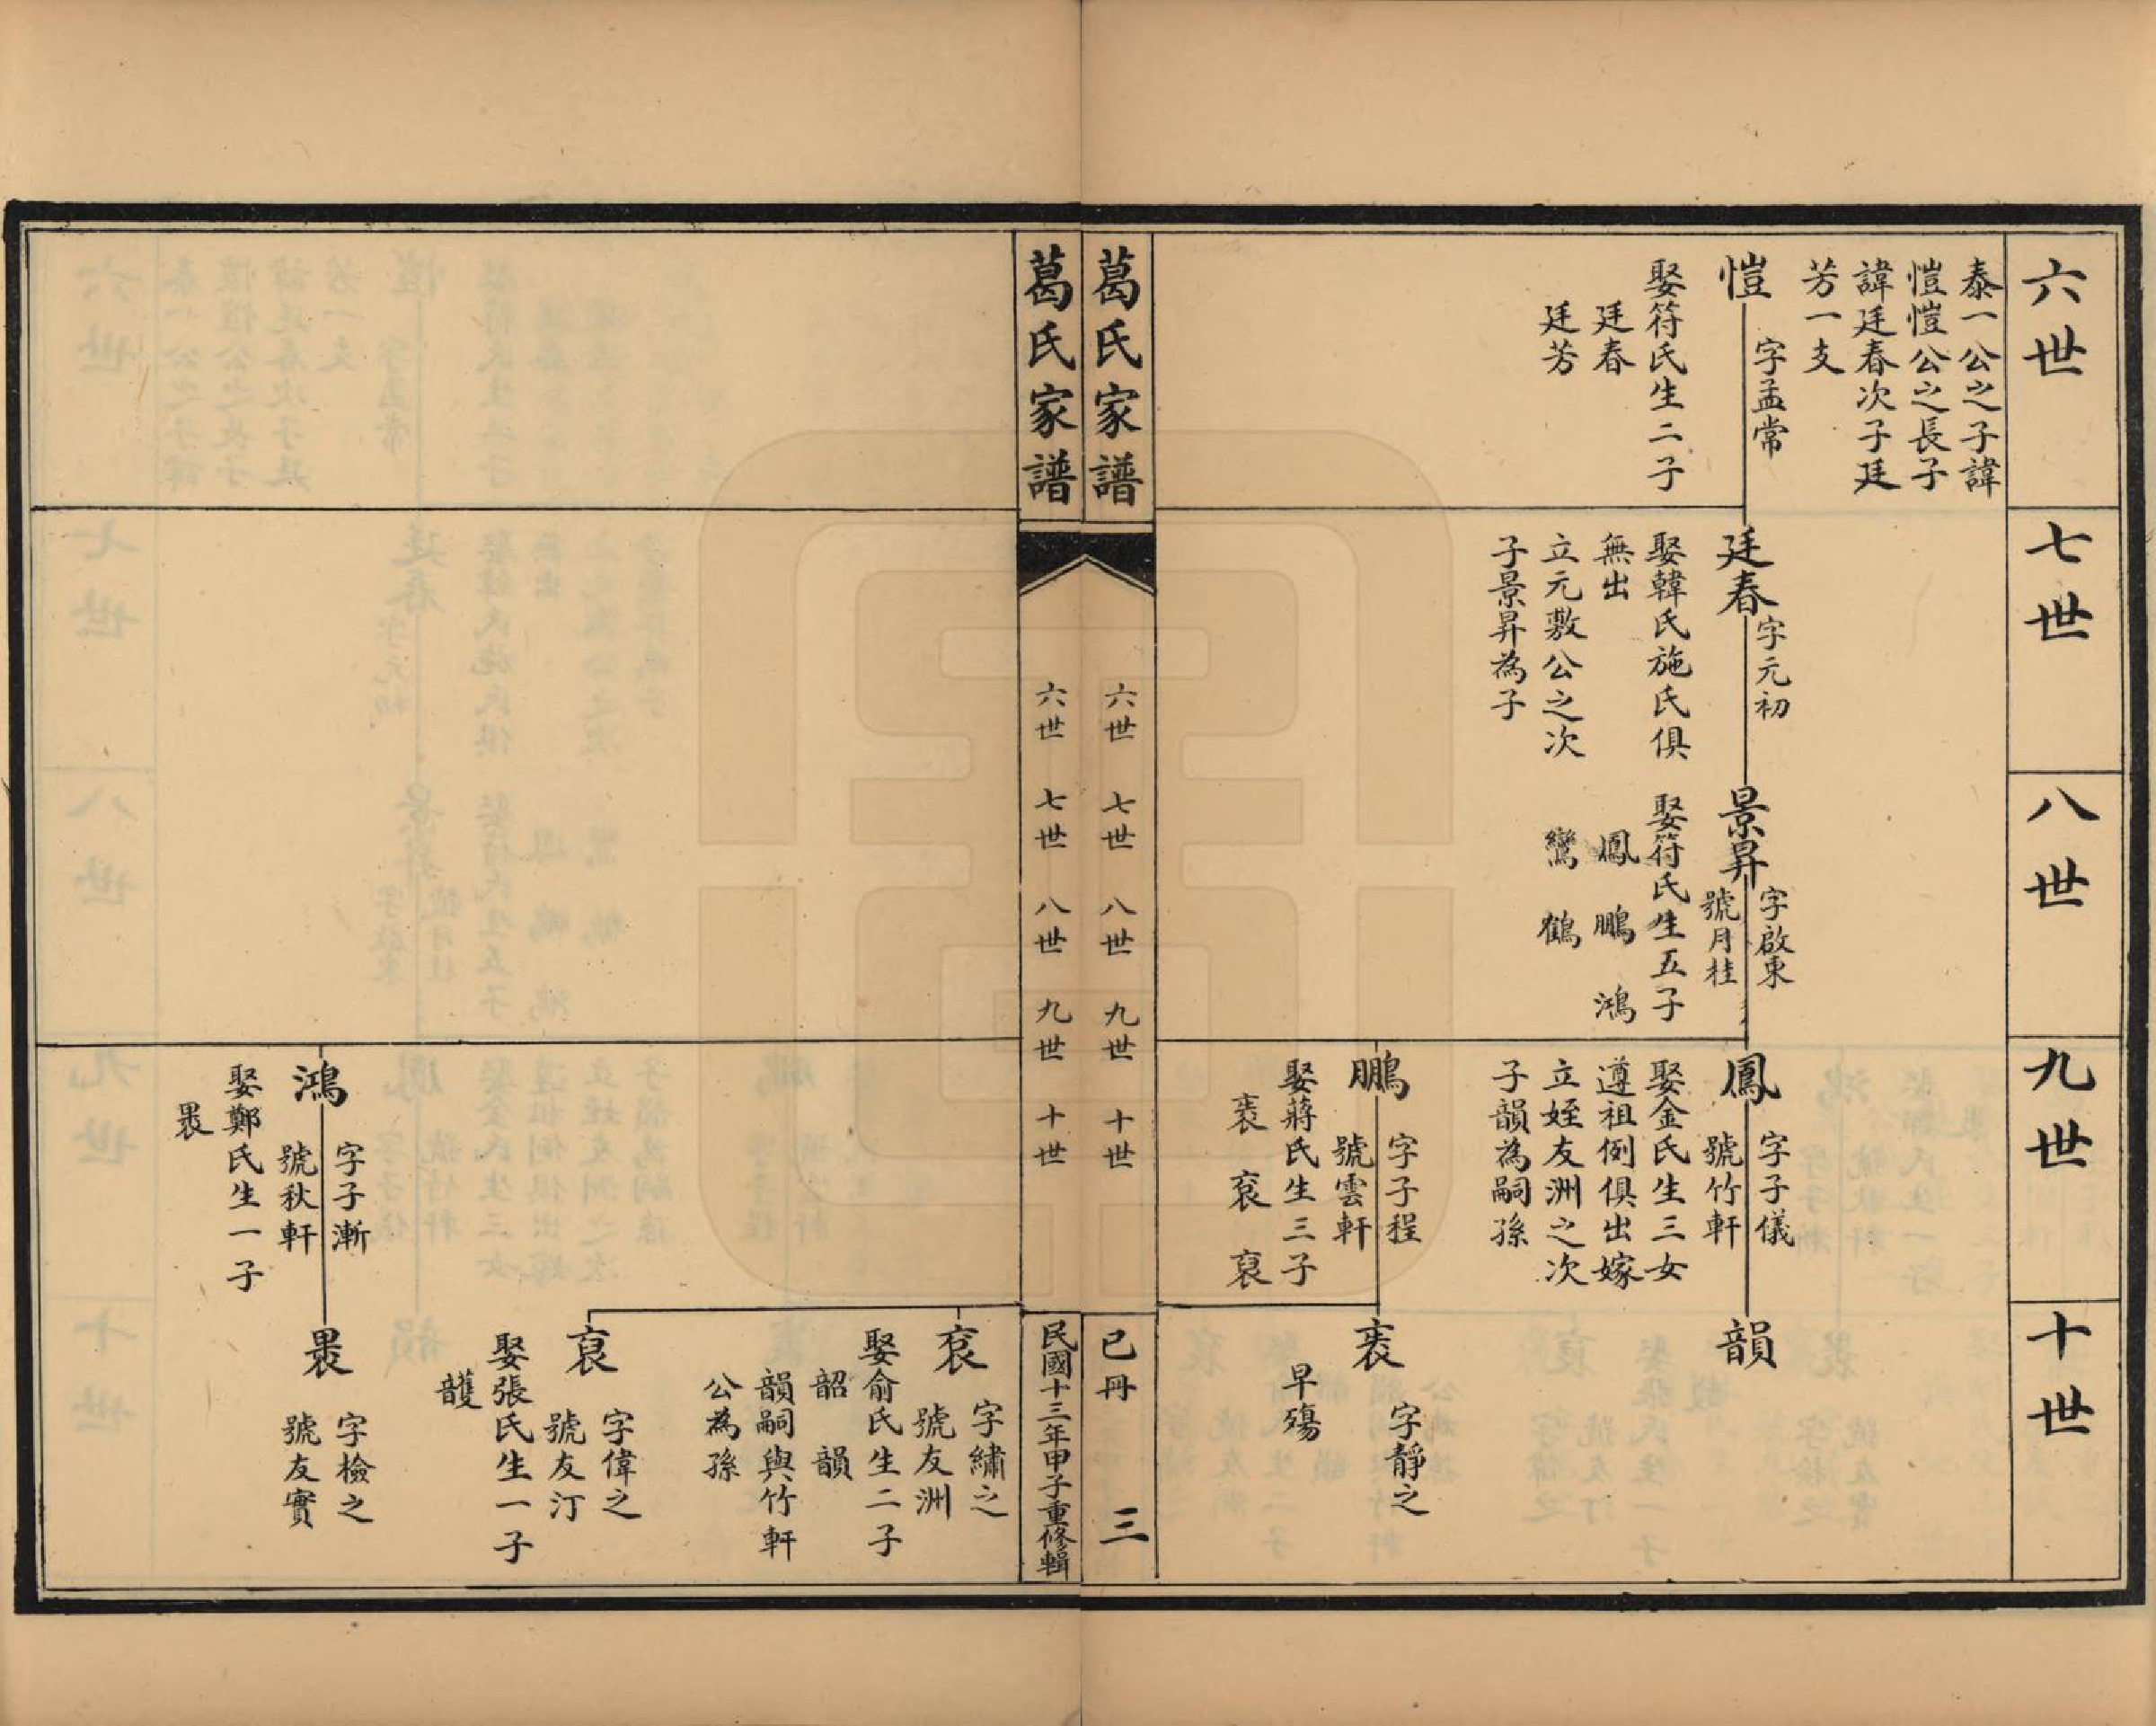 六世
泰一公之子諱
愷愷公之長子
諱廷春次子廷
芳一支
愷
字孟常
娶符氏生二子
廷春
廷芳
七世
廷春
字元初
娶韓氏施氏俱
無出
立元敷公之次
子景昇為子
八世
景昇
字啟東
號月桂
娶符氏生五子
鳳 鵬 鴻
鸞 鶴
九世
鳳
字子儀
號竹軒
娶金氏生三女
遵祖例俱出嫁
立姪友洲之次
子韻為嗣孫
鵬
字子程
號雲軒
娶蔣氏生三子
袠 袞 裒
十世
韻
袠
字靜之
早殤
葛氏家譜
六世 七世 八世 九世 十世
已冊 三
葛氏家譜
六世 七世 八世 九世 十世
民國十三年甲子重修輯
鴻
字子漸
號秋軒
娶鄭氏生一子
褁
袞
字繡之
號友洲
娶俞氏生二子
韶 韻
韻嗣與竹軒
公為孫
裒
字偉之
號友汀
娶張氏生一子
頀
褁
字檢之
號友實